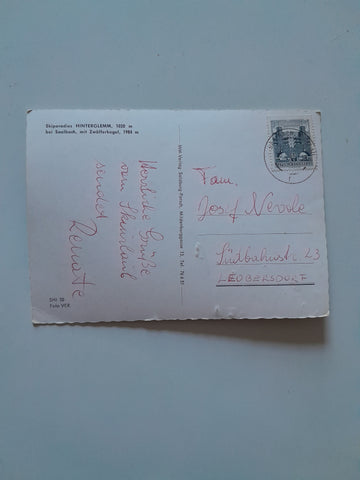 Skiparadies HINTERGLEMM, 1020 m
bei Saalbach, mit Zwölferkogel, 1984 m
Herzliche Grüße
vom Skiurlaub
sendet
Renate
SHI 20
Foto VEK
HWK-Verlag Salzburg-Parsch,
Fam.
Josef
Südbahnstr. 23
LEOBERSDORF